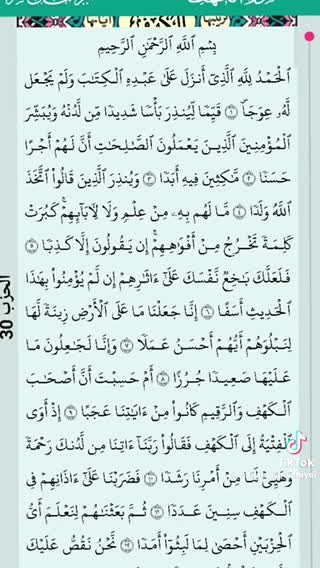 بِسْمِ اللَّهِ الرَّحْمَٰنِ الرَّحِيمِ
الْحَمْدُ لِلَّهِ الَّذِي أَنزَلَ عَلَىٰ عَبْدِهِ الْكِتَابَ وَلَمْ يَجْعَل
لَّهُ عِوَجًا ۜ ١ قَيِّمًا لِّيُنذِرَ بَأْسًا شَدِيدًا مِّن لَّدُنْهُ وَيُبَشِّرَ
الْمُؤْمِنِينَ الَّذِينَ يَعْمَلُونَ الصَّالِحَاتِ أَنَّ لَهُمْ أَجْرًا
حَسَنًا ٢ مَّاكِثِينَ فِيهِ أَبَدًا ٣ وَيُنذِرَ الَّذِينَ قَالُوا اتَّخَذَ
اللَّهُ وَلَدًا ٤ مَّا لَهُم بِهِ مِنْ عِلْمٍ وَلَا لِآبَائِهِمْ ۚ كَبُرَتْ
كَلِمَةً تَخْرُجُ مِنْ أَفْوَاهِهِمْ ۚ إِن يَقُولُونَ إِلَّا كَذِبًا ٥
فَلَعَلَّكَ بَاخِعٌ نَّفْسَكَ عَلَىٰ آثَارِهِمْ إِن لَّمْ يُؤْمِنُوا بِهَٰذَا
الْحَدِيثِ أَسَفًا ٦ إِنَّا جَعَلْنَا مَا عَلَى الْأَرْضِ زِينَةً لَّهَا
لِنَبْلُوَهُمْ أَيُّهُمْ أَحْسَنُ عَمَلًا ٧ وَإِنَّا لَجَاعِلُونَ مَا
عَلَيْهَا صَعِيدًا جُرُزًا ٨ أَمْ حَسِبْتَ أَنَّ أَصْحَابَ
الْكَهْفِ وَالرَّقِيمِ كَانُوا مِنْ آيَاتِنَا عَجَبًا ٩ إِذْ أَوَى
الْفِتْيَةُ إِلَى الْكَهْفِ فَقَالُوا رَبَّنَا آتِنَا مِن لَّدُنكَ رَحْمَةً
وَهَيِّئْ لَنَا مِنْ أَمْرِنَا رَشَدًا ١٠ فَضَرَبْنَا عَلَىٰ آذَانِهِمْ فِي
الْكَهْفِ سِنِينَ عَدَدًا ١١ ثُمَّ بَعَثْنَاهُمْ لِنَعْلَمَ أَيُّ
الْحِزْبَيْنِ أَحْصَىٰ لِمَا لَبِثُوا أَمَدًا ١٢ نَّحْنُ نَقُصُّ عَلَيْكَ
الحزب 30
TikTok